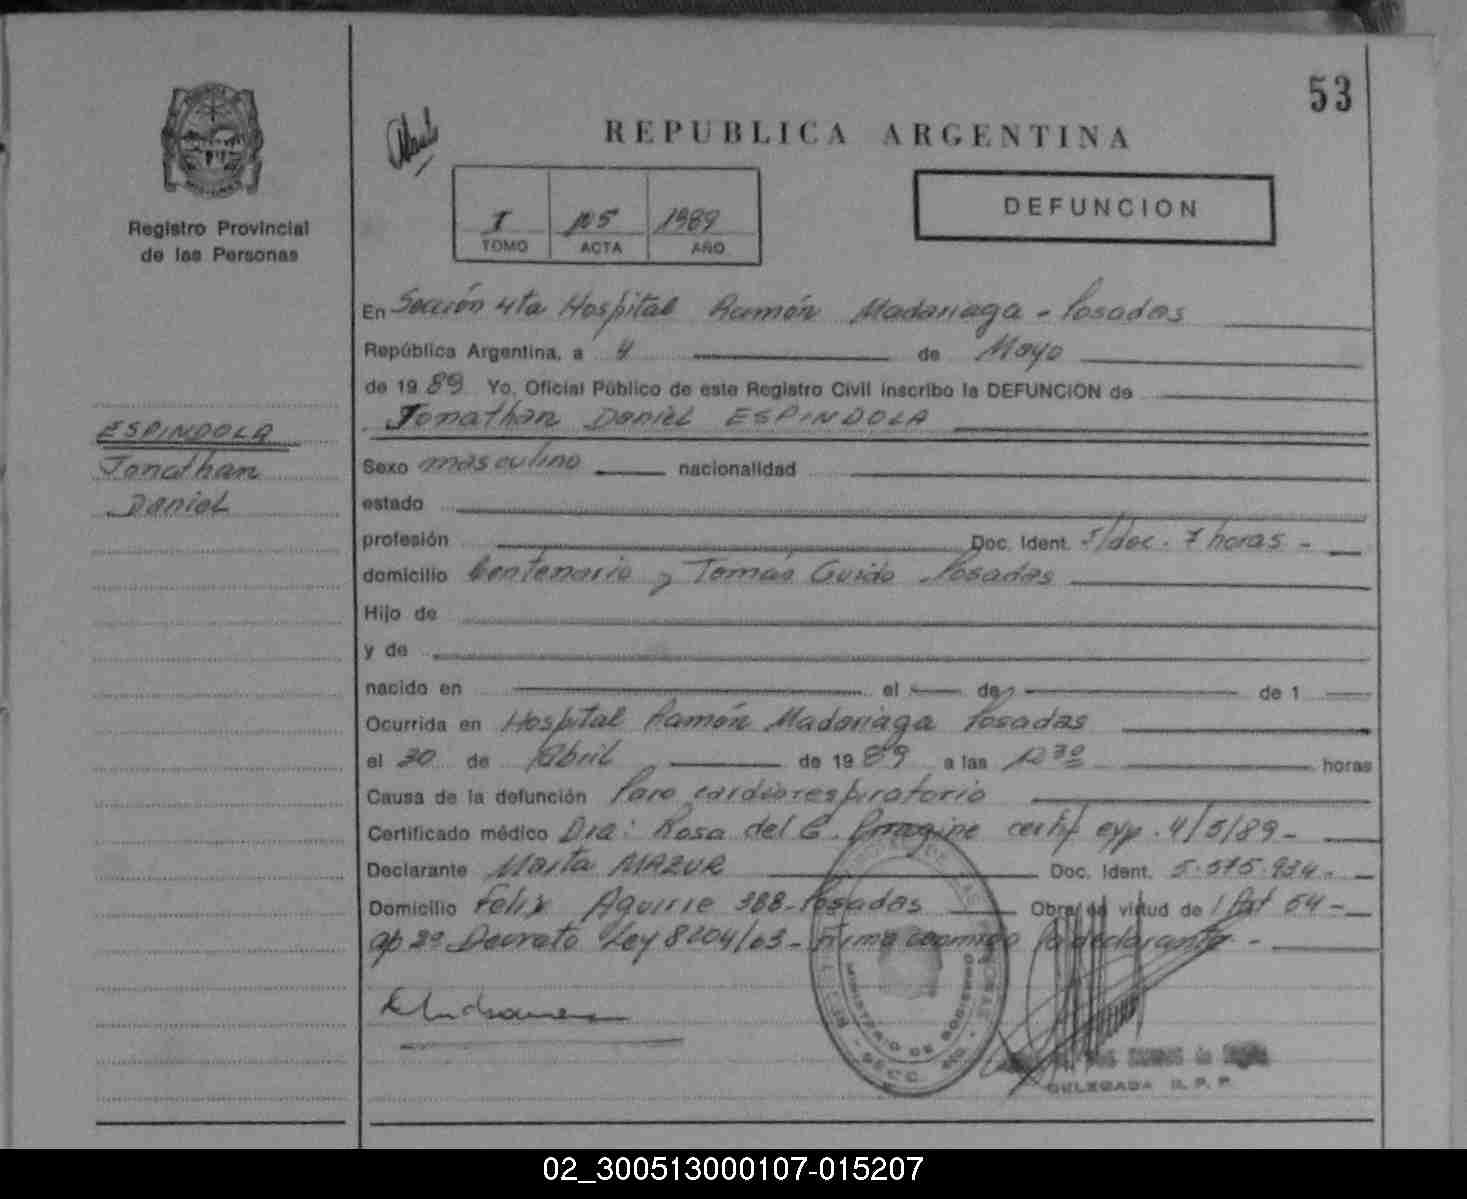 53
REPUBLICA ARGENTINA
DEFUNCION
I 105 1989
TOMO ACTA AÑO
Registro Provincial
de las Personas
ESPINDOLA
Jonathan
Daniel
En Sección 4ta Hospital Ramón Madariaga - Posadas
República Argentina, a 4 de Mayo
de 1989 Yo, Oficial Público de este Registro Civil inscribo la DEFUNCION de
Jonathan Daniel ESPINDOLA
Sexo masculino nacionalidad
estado
profesión Doc. Ident. s/doc. 7 horas -
domicilio Centenario y Tomás Guido Posadas
Hijo de
y de
nacido en el de de 1
Ocurrida en Hospital Ramón Madariaga Posadas
el 30 de Abril de 1989 a las 12 30 horas
Causa de la defunción Paro cardiorespiratorio
Certificado médico Dra: Rosa del C. certif exp. 4/5/89-
Declarante Marta MAZUR Doc. Ident. 5.575.934-
Domicilio Felix Aguirre 388-Posadas Obra en virtud de 54-
ap 2º Decreto Ley 8204/63- Firma conmigo la declarante -
MINISTERIO DE GOBIERNO
SECC. 4ta
DELEGADA R. P. P.
02_300513000107-015207